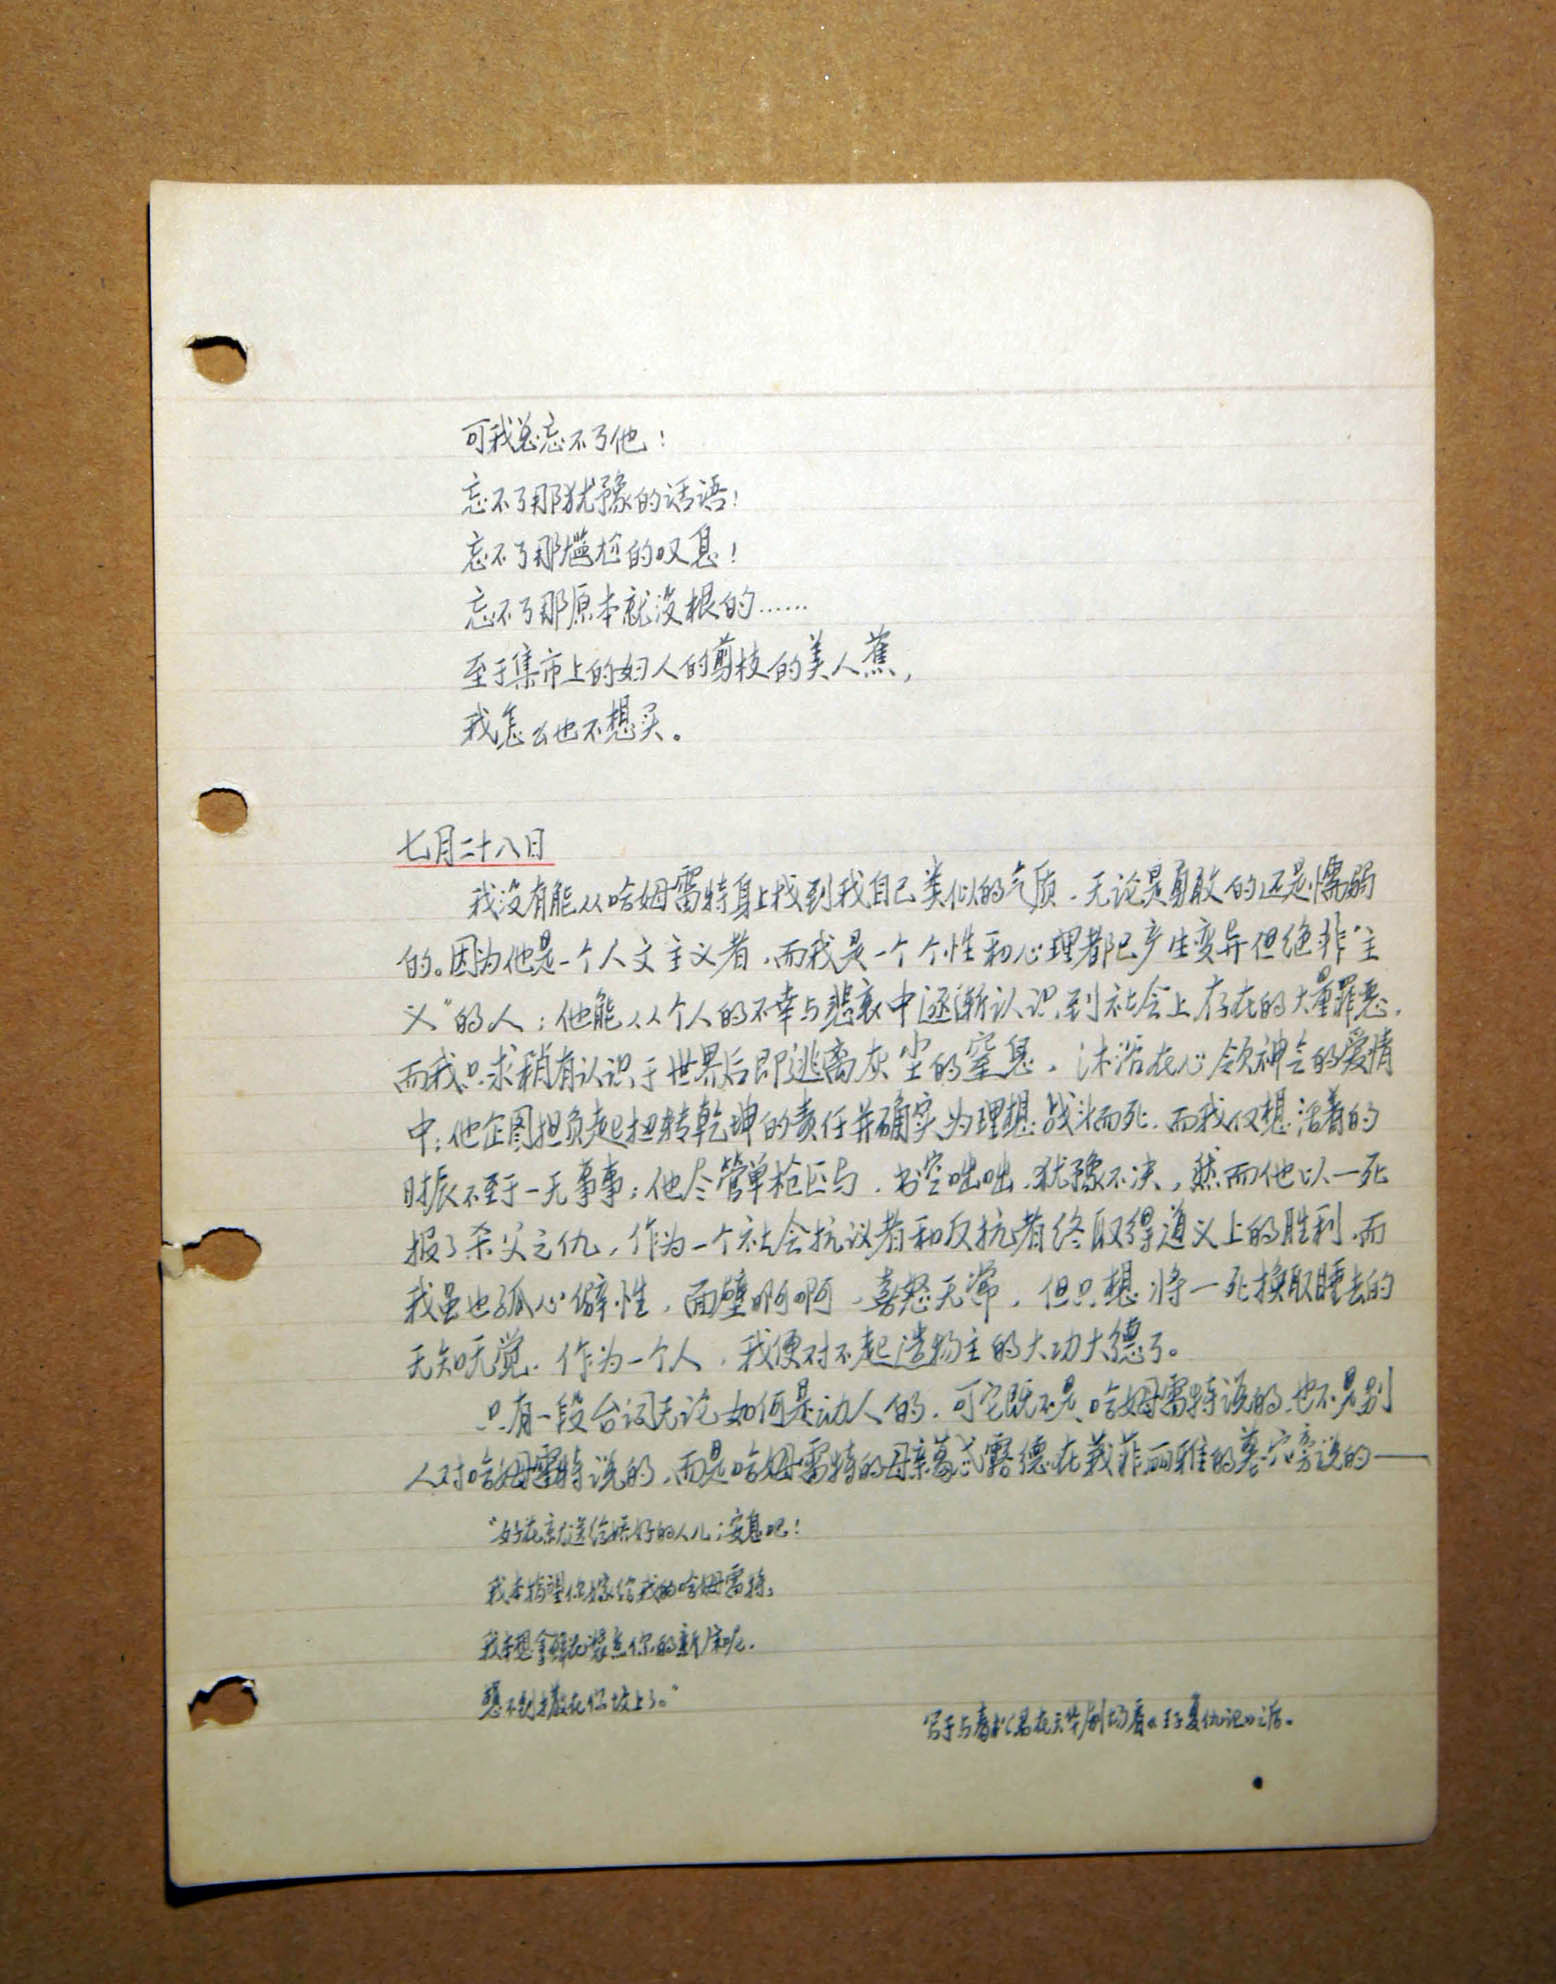 可我总忘不了他！
忘不了那犹豫的话语！
忘不了那尴尬的叹息！
忘不了那原本就没根的……
至于集市上的妇人的剪枝的美人蕉，
我怎么也不想买。
七月二十八日
我没有能从哈姆雷特身上找到我自己类似的气质，无论是勇敢的还是懦弱
的。因为他是一个人文主义者，而我是一个个性和心理都已产生变异但绝非“主
义”的人；他能从个人的不幸与悲哀中逐渐认识到社会上存在的大量罪恶，
而我只求稍有认识于世界后即逃离灰尘的窒息，沐浴在心领神会的爱情
中；他企图担负起扭转乾坤的责任并确实为理想战斗而死，而我仅想活着的
时辰不至于一无事事；他尽管单枪匹马，书空咄咄，犹豫不决，然而他以一死
报了杀父之仇，作为一个社会抗议者和反抗者终取得道义上的胜利，而
我虽也孤心僻性，面壁啊啊，喜怒无常，但只想将一死换取睡去的
无知无觉，作为一个人，我便对不起造物主的大功大德了。
只有一段台词无论如何是动人的，可它既不是哈姆雷特说的，也不是别
人对哈姆雷特说的，而是哈姆雷特的母亲葛忒露德在莪菲丽雅的墓穴旁说的——
“好花就送给好的人儿；安息吧！
我本指望你嫁给我的哈姆雷特，
我本想拿鲜花装点你的新床呢，
想不到撒在你坟上了。”
写于与君在天华剧场看《王子复仇记》之后。